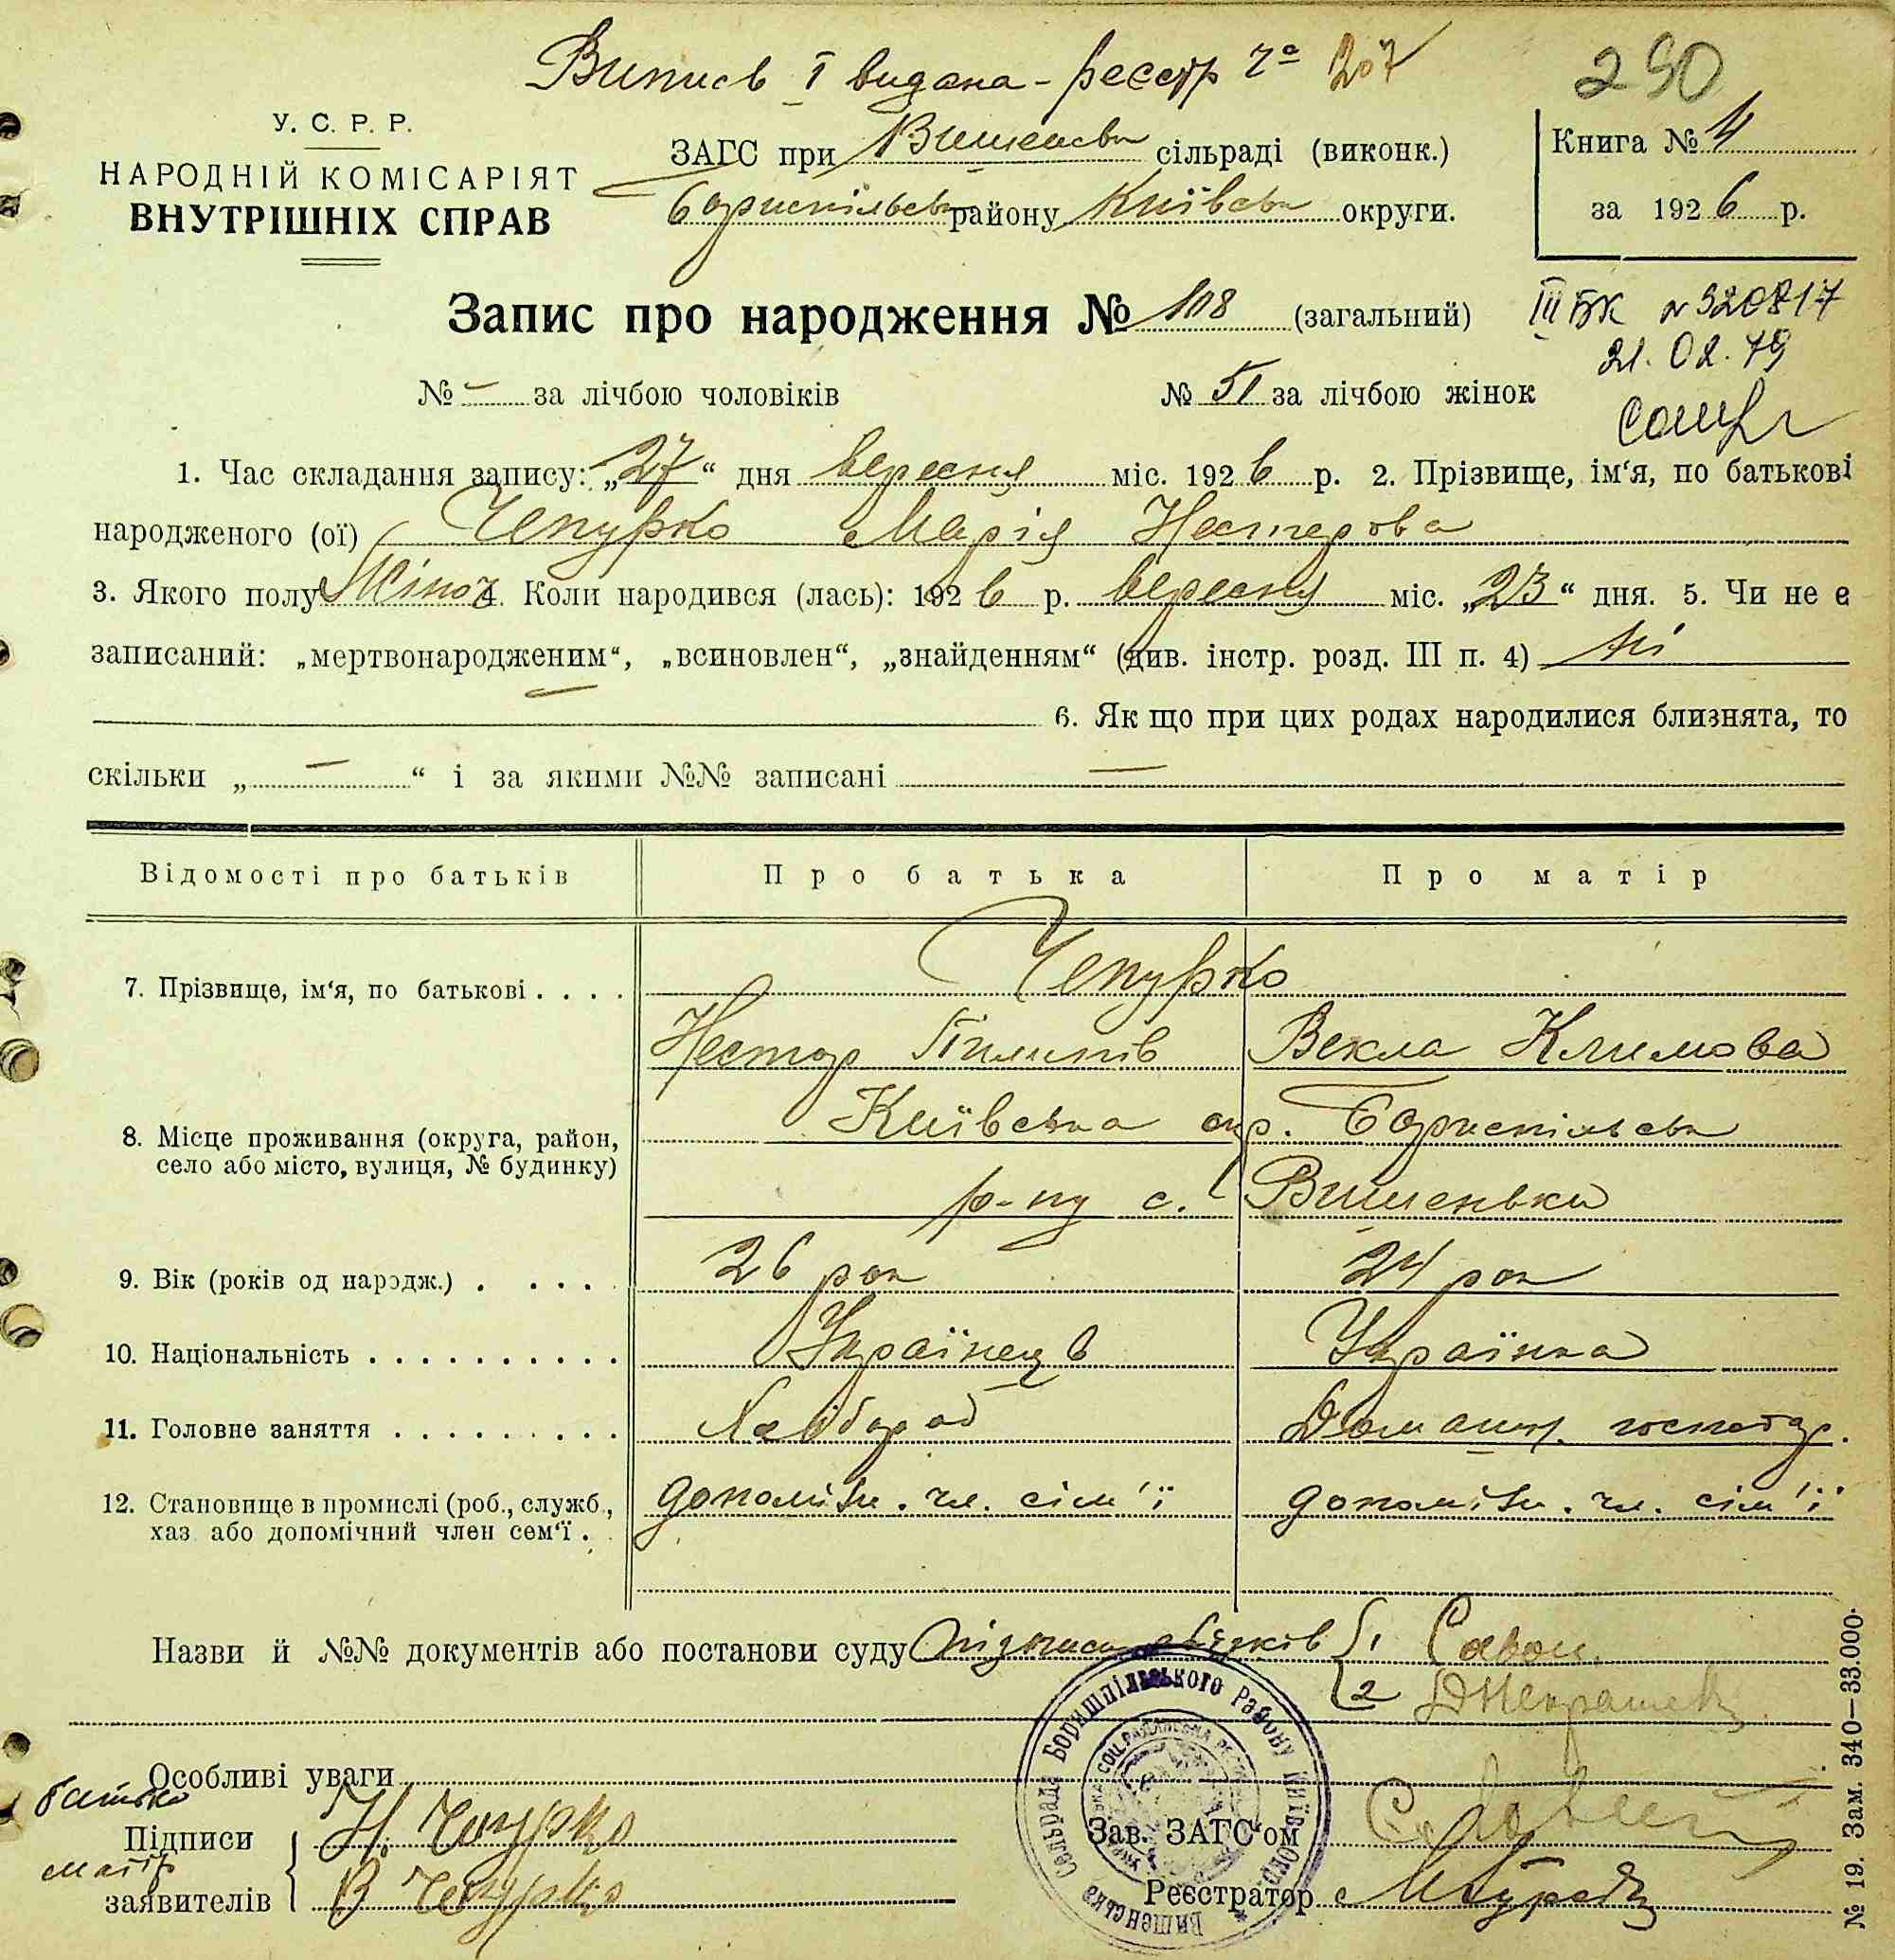 Випись І видана - реєстр ча 207
290
У. С. Р. Р.
НАРОДНІЙ КОМІСАРІЯТ
ВНУТРІШНІХ СПРАВ
ЗАГС при Вишенськ сільраді (виконк.)
Бориспільськ району Київськ округи.
Книга № 4
за 1926 р.
Запис про народження № 108 (загальний)
III БК № 320817
21.02.79
№ — за лічбою чоловіків № 51 за лічбою жінок
1. Час складання запису: „27“ дня вересня міс. 1926 р. 2. Прізвище, ім‘я, по батькові
народженого (ої) Чепурко Марія Нестерова
3. Якого полу Жіноч 4. Коли народився (лась): 1926 р. вересня міс. „23“ дня. 5. Чи не є
записаний: „мертвонародженим“, „всиновлен“, „знайденням“ (див. інстр. розд. III п. 4) ні
— 6. Як що при цих родах народилися близнята, то
скільки „ — “ і за якими №№ записані —
Відомості про батьків Про батька Про матір
7. Прізвище, ім‘я, по батькові . . . . Чепурко
Нестор Пилипів Векла Климова
8. Місце проживання (округа, район,
село або місто, вулиця, № будинку)
Київська окр. Бориспільськ
р-ну с. Вишеньки
9. Вік (років од народж.) . . . . . 26 рок 24 рок
10. Національність . . . . . . . . . . . Українець Українка
11. Головне заняття . . . . . . . . . . Хлібороб Домашн. господар.
12. Становище в промислі (роб., служб.,
хаз. або допомічний член сем‘ї .
допоміжн. чл. сім'ї допоміжн. чл. сім'ї
Назви й №№ документів або постанови суду Підписи свідків { 1
2
Вишенська Сельрада Боришпільського Району Київ. Окр.
Особливі уваги
батько
Підписи Н. Чепурко
матір
заявителів В Чепурко
Зав. ЗАГС‘ом
Реєстратор
№ 19. Зам. 340—33.000.